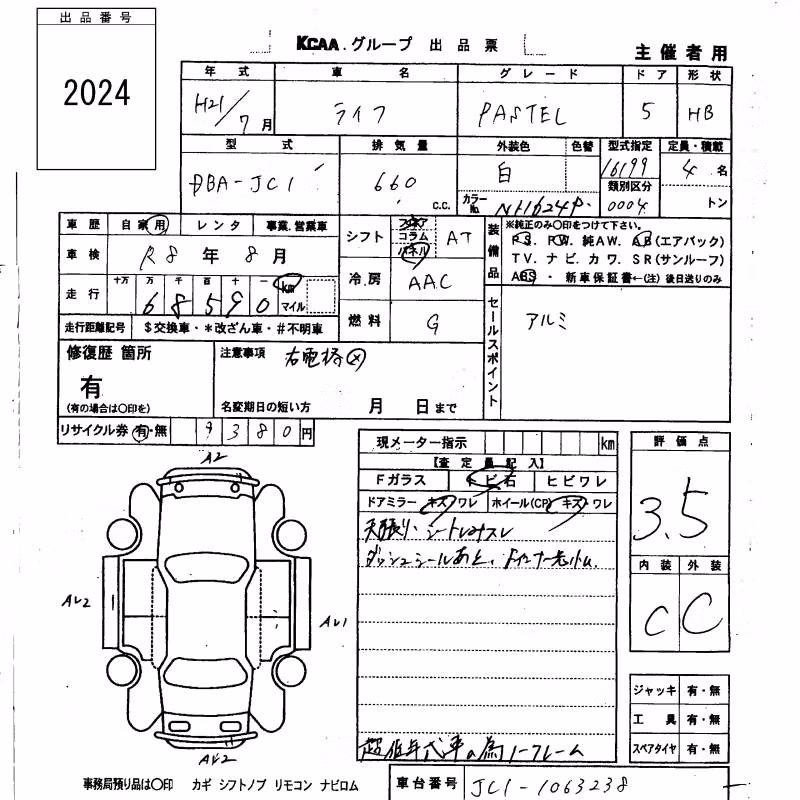 出品番号
2024
KCAA.グループ 出品票
主催者用
年式 車名 グレード ドア 形状
H21/7月 ライフ PASTEL 5 HB
型式 排気量 外装色 色替 型式指定 定員・積載
DBA-JC1 660 c.c. 白 16199 4名
カラーNo. NH624P 類別区分 0004 トン
車歴 自家用 レンタ 事業.営業車
シフト フロア コラム パネル AT
装備品
※純正のみ○印をつけて下さい。
PS. PW. 純AW. AB(エアバック)
TV. ナビ. カワ. SR(サンルーフ)
ABS ・ 新車保証書←(注) 後日送りのみ
車検 R8年8月
冷房 AAC
走行 十万 万 千 百 十 一 km マイル
68590
燃料 G
セールスポイント
アルミ
走行距離記号 $交換車・*改ざん車・#不明車
修復歴 箇所
有
(有の場合は○印を)
注意事項
名変期日の短い方 月 日まで
リサイクル券 有・無 9380円
現メーター指示 km
【査定記入】
Fガラス トビ石 ヒビワレ
ドアミラー キズ ワレ ホイール(CP) キズ ワレ
天張り、シート
評価点
3.5
内装 外装
C C
A2
AU2
AU1
AU2
超低年式車の為ノークレーム
ジャッキ 有・無
工具 有・無
スペアタイヤ 有・無
事務局預り品は○印 カギ シフトノブ リモコン ナビロム
車台番号 JC1-1063238